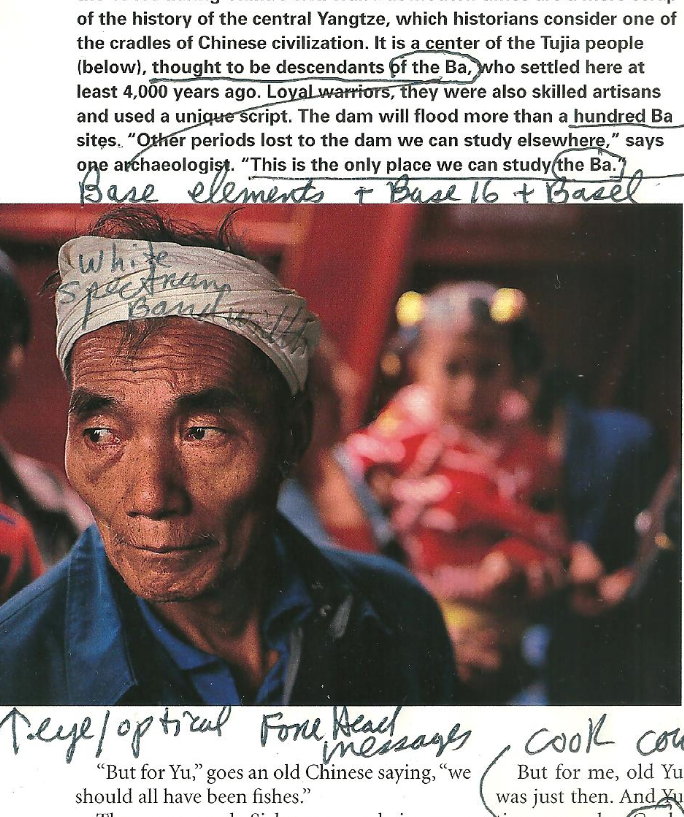 of the history of the central Yangtze, which historians consider one of
the cradles of Chinese civilization. It is a center of the Tujia people
(below), thought to be descendants of the Ba, who settled here at
least 4,000 years ago. Loyal warriors, they were also skilled artisans
and used a unique script. The dam will flood more than a hundred Ba
sites. “Other periods lost to the dam we can study elsewhere,” says
one archaeologist. “This is the only place we can study the Ba.”
Base elements + Base 16 + Basel
White
Spectrum
Bandwidth
↑ eye/optical Fore Head
messages
cook
“But for Yu,” goes an old Chinese saying, “we
should all have been fishes.”
But for me, old Yu
was just then. And Yu